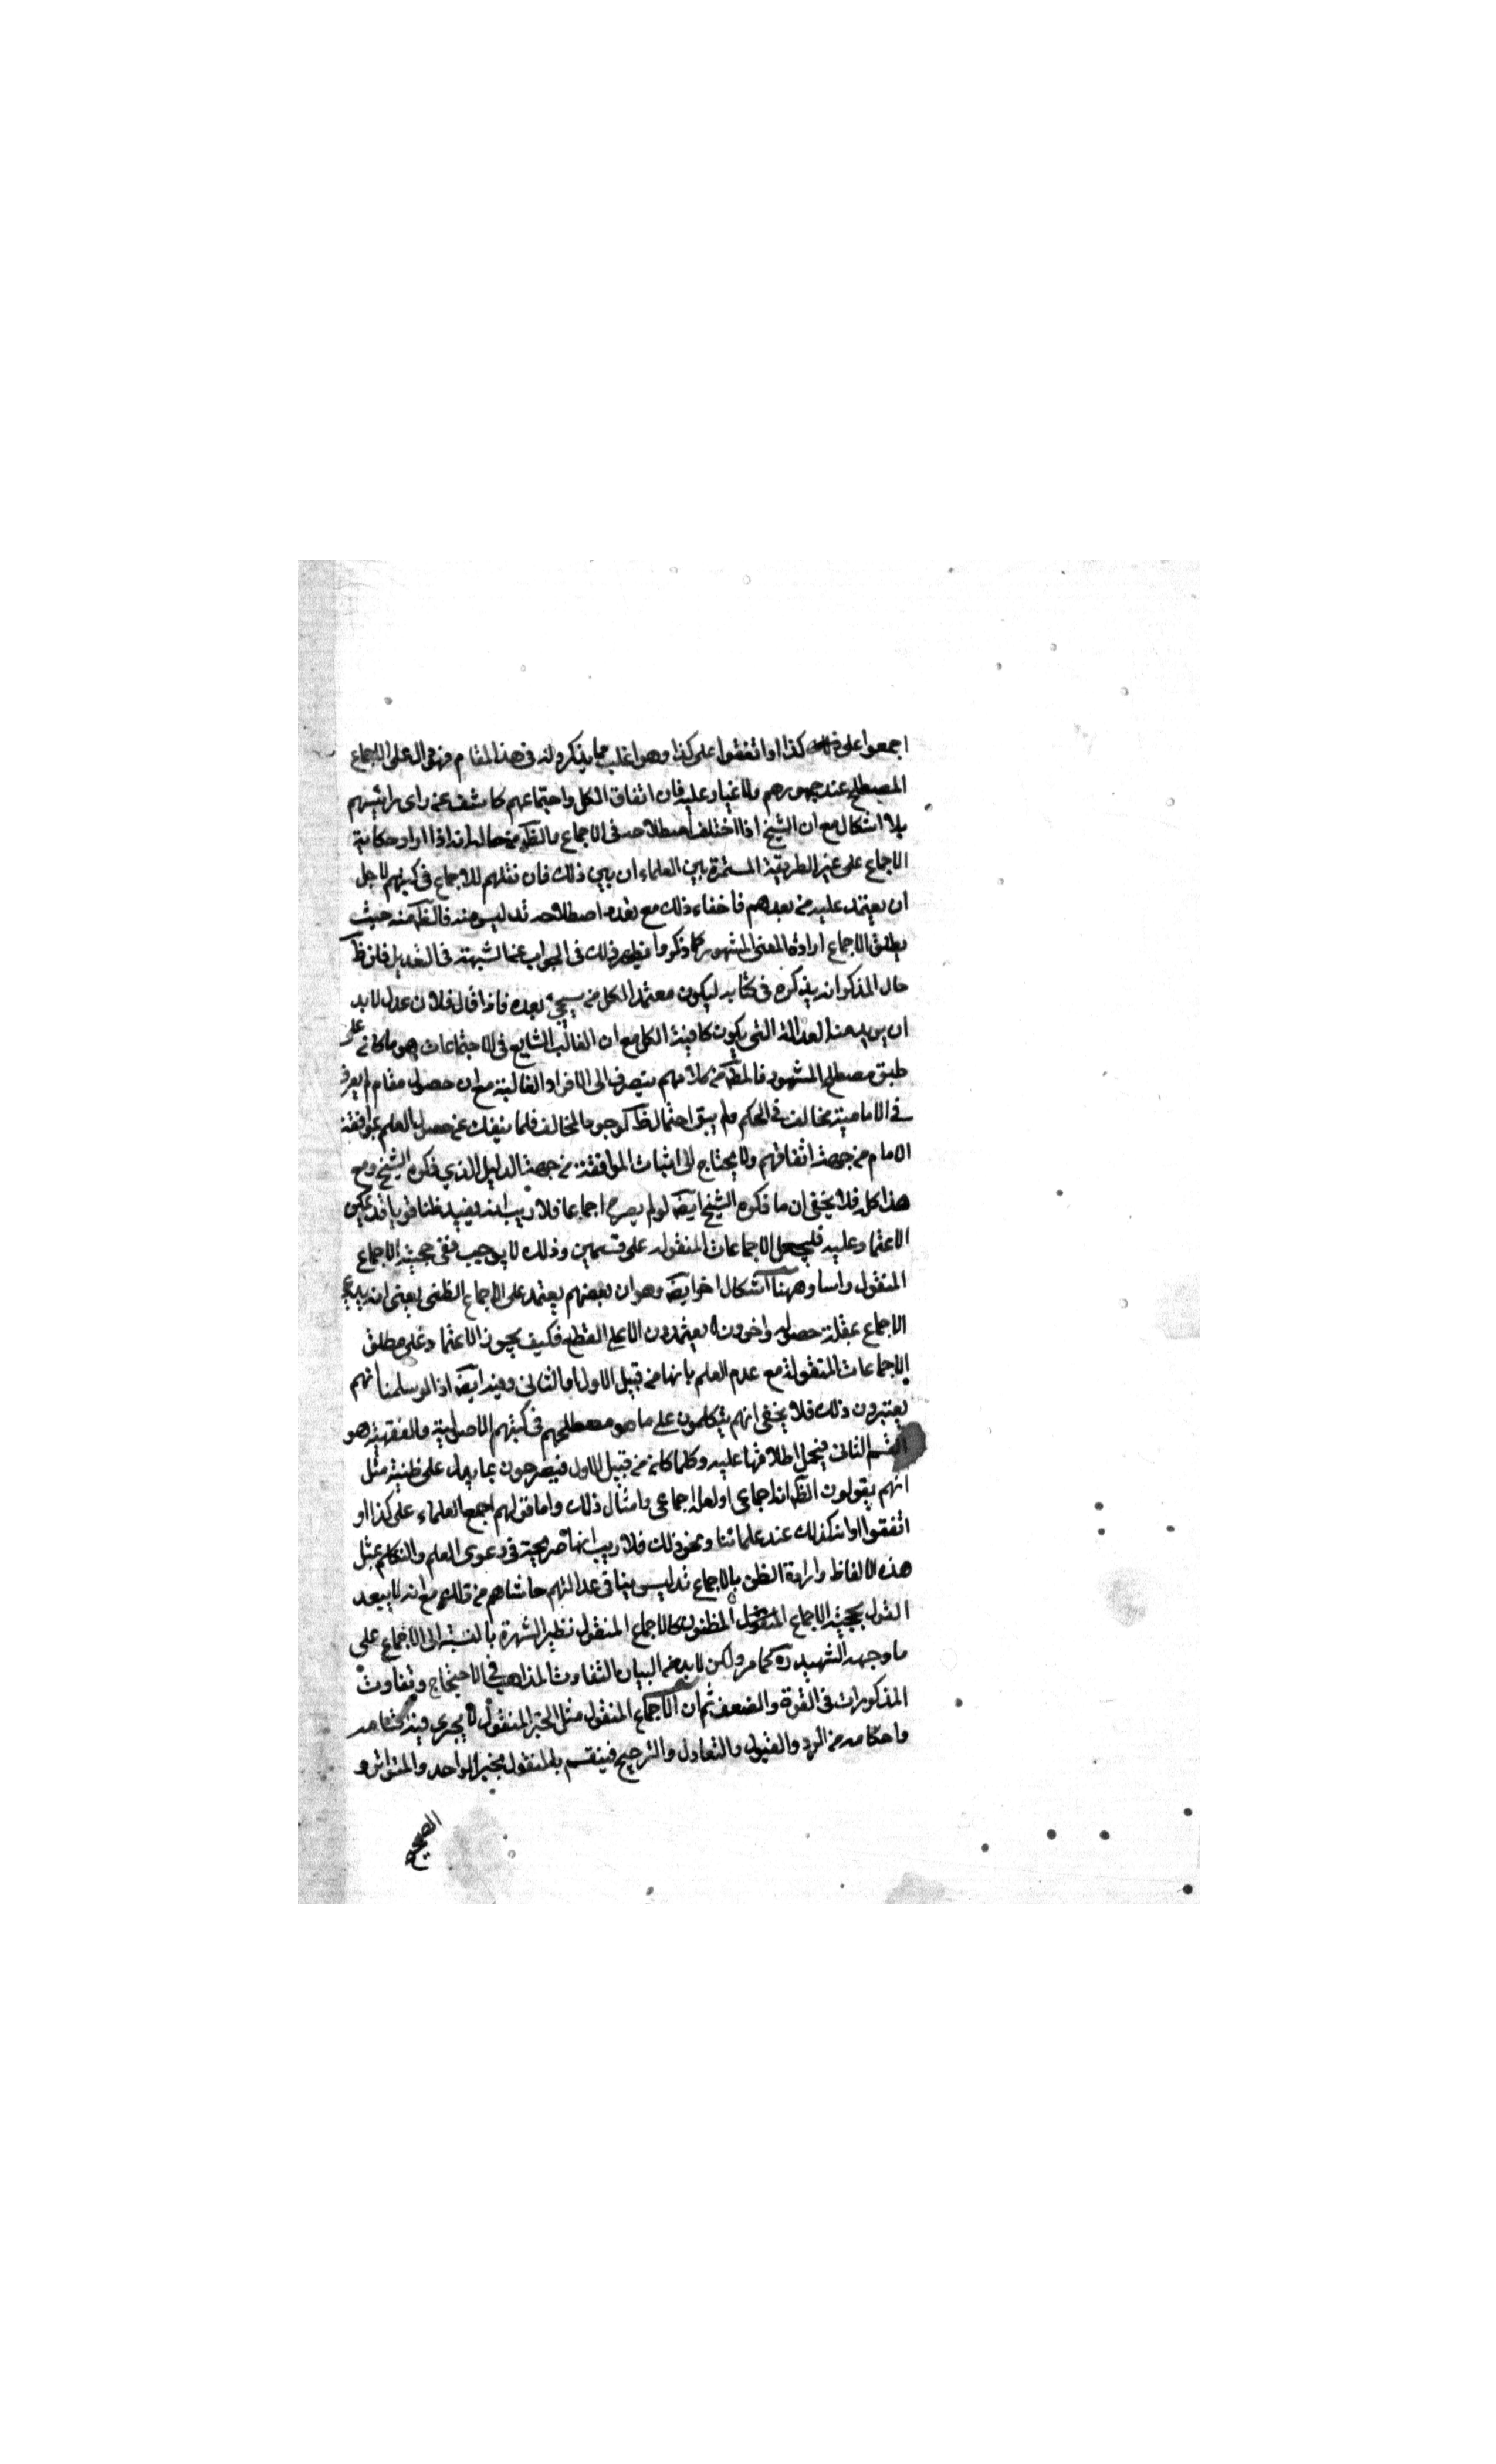 اجمعوا على ذلك كذا او اتفقوا على كذا وهو اغلب مما يذكرونه فى هذا المقام فهو دال على الاجماع
المصطلح عند جمهورهم ولا غبار عليه فان اتفاق الكل واجتماعهم كاشف عن راى رئيسهم
بلا اشكال مع ان الشيخ اذا اختلف اصطلاحه فى الاجماع فالظ من حاله انه اذا اراد حكاية
الاجماع على غير الطريقة المستمرة بين العلماء ان يبين ذلك فان نقلهم للاجماع فى كتبهم لاجل
ان يعتمد عليه من بعدهم فاخفاء ذلك مع تعدد اصطلاحه تدليس منه فالظ منه حيث
يطلق الاجماع ارادة المعنى المشهور كما ذكروا نظير ذلك فى الجواب عن الشبهة فى التعديل فان ظ
حال المذكر انه يذكره فى كتابه ليكون معتمد الكل من سيجئ بعده فاذا قال فلان عدل لابد
ان يريد منه العدالة التى يكون كافية الكل مع ان الغالب الشايع فى الاجماعات هو ما كان على
طبق مصطلح المشهور فالمط من كلامهم ينصرف الى الافراد الغالبة مع ان حصول مقام لم يعرف
فى الامامية مخالف فى الحكم ولم يبق احتمال ظ كوجود المخالف فلما ينفك عن حصول العلم بموافقة
الامام من جهة اتفاقهم ولا يحتاج الى اثبات الموافقة من جهة الدليل الذى ذكره الشيخ ومع
هذا كله فلا يخفى ان ما ذكره الشيخ ايضا لو لم يصر اجماعا فلا ريب انه يفيد ظنا قويا قد يمكن
الاعتماد عليه فليجعل الاجماعات المنقوله على قسمين وذلك لا يوجب نفى حجية الاجماع
المنقول راسا وههنا اشكال اخر ايضا وهو ان بعضهم يعتمد على الاجماع الظنى يعنى انه يدعى
الاجماع بمظنة حصوله واخرون لا يعتمدون الا على القطع فكيف يجوز الاعتماد على مطلق
الاجماعات المنقولة مع عدم العلم بانها من قبيل الاول او الثانى وفيه ايضا انا لو سلمنا انهم
يعتبرون ذلك فلا يخفى انهم يتكلمون على ما هو مصطلحهم فى كتبهم الاصولية والفقهية هو
القسم الثانى فيحمل اطلاقها عليه وكلما كان من قبيل الاول فيصرحون بما يدل على ظنية مثل
انهم يقولون الظ انه اجماعى او لعله اجماعى وامثال ذلك واما قولهم اجمع العلماء على كذا او
اتفقوا او انه كذلك عند علمائنا ونحو ذلك فلا ريب انها صريحة فى دعوى العلم والتكلم بمثل
هذه الالفاظ وارادة الظن بالاجماع تدليس ينافى عدالتهم حاشاهم من ذلك مع انه لا يبعد
القول بحجية الاجماع المنقول المظنون كالاجماع المنقول نظير الشهرة بالنسبة الى الاجماع على
ما وجهه الشهيد ره كما مر ولكن لابد من البيان لتفاوت المذاهب فى الاحتجاج وتفاوت
المذكورات فى القوة والضعف ثم ان الاجماع المنقول مثل الخبر المنقول لا يجرى فيه
واحكامه من الرد والقبول والتعادل والترجيح فينقسم بالمنقول بخبر الواحد والمتواتر و
الصحيح